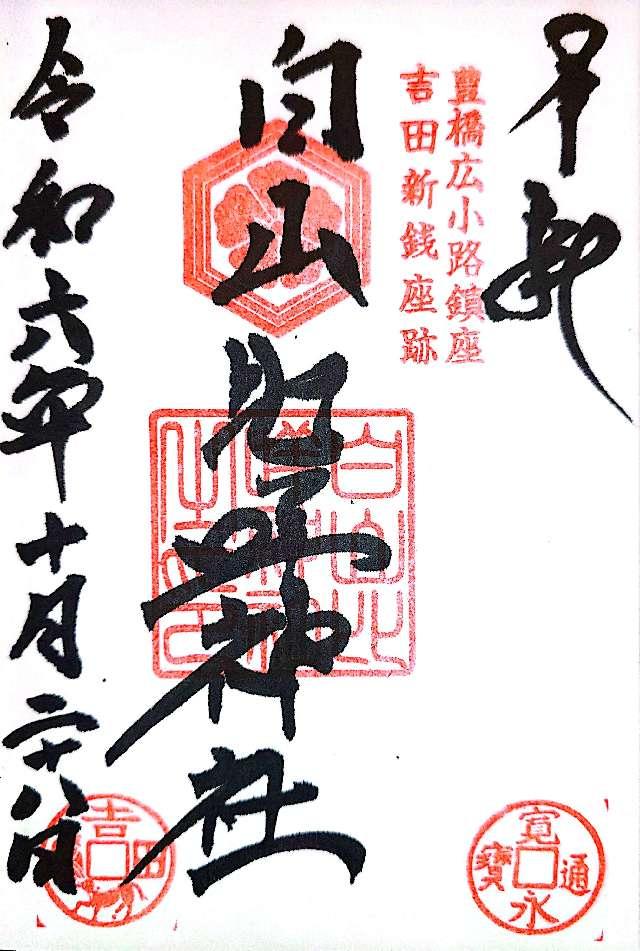 奉拝
豊橋広小路鎮座
吉田新銭座跡
白山比咩神社
令和六年十月二十八日
寛永通寳
吉田